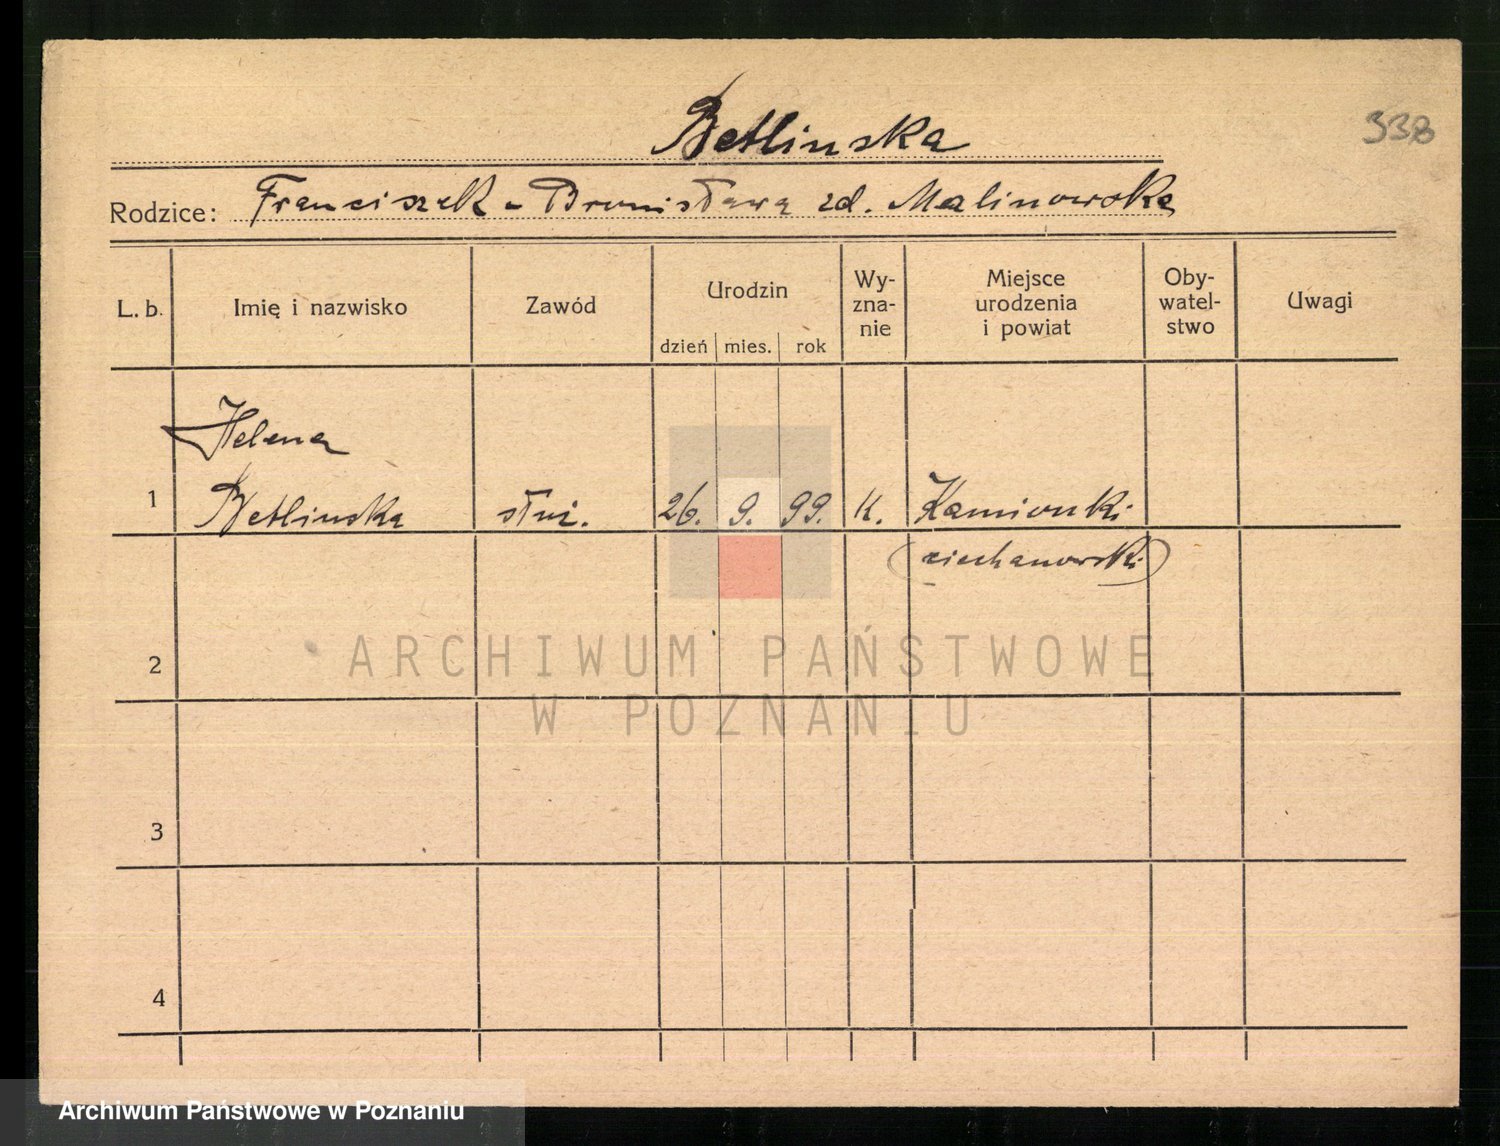 338
Betlinska
Rodzice: Franciszek - Bronisława zd. Malinowska
L. b. Imię i nazwisko Zawód Urodzin Wy-zna-nie Miejsce urodzenia i powiat Oby-watel-stwo Uwagi
dzień mies. rok
Helena
1 Betlinska służ. 26. 9. 99. K. Kamionki
(ciechanowski)
2
3
4
ARCHIWUM PAŃSTWOWE
W POZNANIU
Archiwum Państwowe w Poznaniu